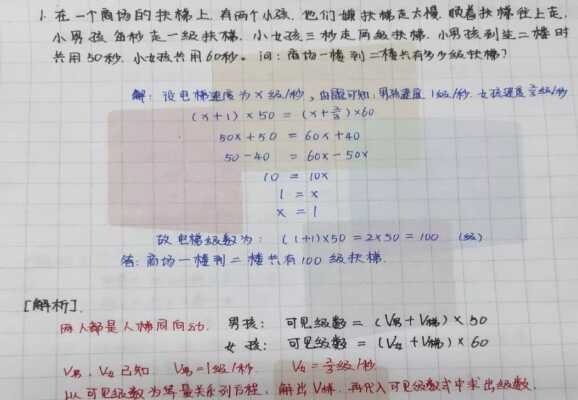 1. 在一个商场的扶梯上,有两个小孩,他们嫌扶梯走太慢,顺着扶梯往上走,
小男孩每秒走一级扶梯,小女孩三秒走两级扶梯,小男孩到达二楼时
共用50秒,小女孩共用60秒。问:商场一楼到二楼共有多少级扶梯?
解:设电梯速度为x级/秒,由题可知:男孩速度1级/秒,女孩速度2/3级/秒
(x+1)×50 = (x+2/3)×60
50x+50 = 60x+40
50-40 = 60x-50x
10 = 10x
1 = x
x = 1
故电梯级数为: (1+1)×50 = 2×50 = 100 (级)
答:商场一楼到二楼共有100级扶梯.
[解析].
两人都是人梯同向动. 男孩: 可见级数 = (V男+V梯)×50
女孩: 可见级数 = (V女+V梯)×60
V男、V女已知. V男=1级/秒. V女=2/3级/秒
以可见级数为等量关系列方程,解出V梯.再代入可见级数式中求出级数.